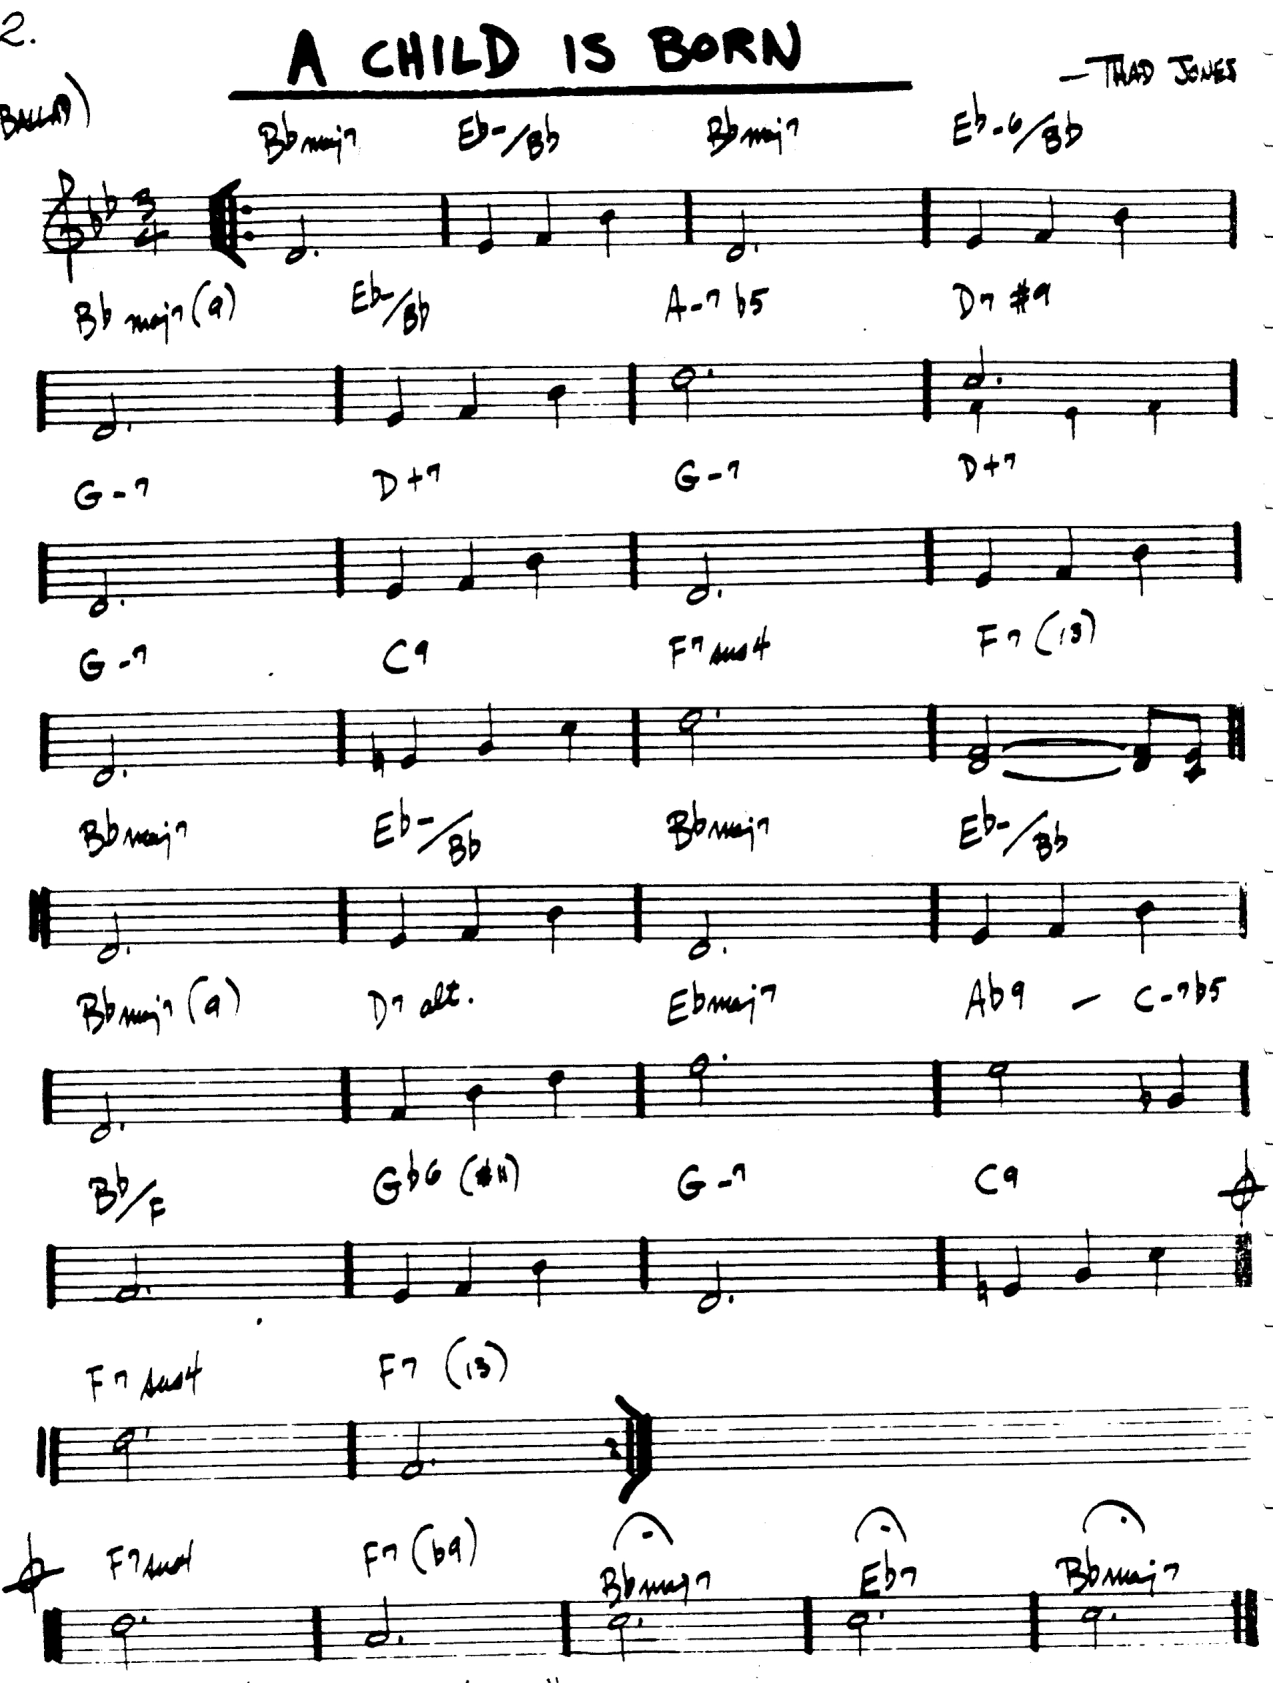 2.
A CHILD IS BORN
— THAD JONES
BALLAD)
Bb maj7 Eb-/Bb Bb maj7 Eb-6/Bb
3
4
Bb maj7 (9) Eb-/Bb A-7 b5 D7 #9
G-7 D+7 G-7 D+7
G-7 C9 F7 sus4 F7 (13)
Bb maj7 Eb-/Bb Bb maj7 Eb-/Bb
Bb maj7 (9) D7 alt. Eb maj7 Ab9 — C-7b5
Bb/F Gb6 (#11) G-7 C9
F7 sus4 F7 (13)
F7 sus4 F7 (b9) Bb maj7 Eb7 Bb maj7